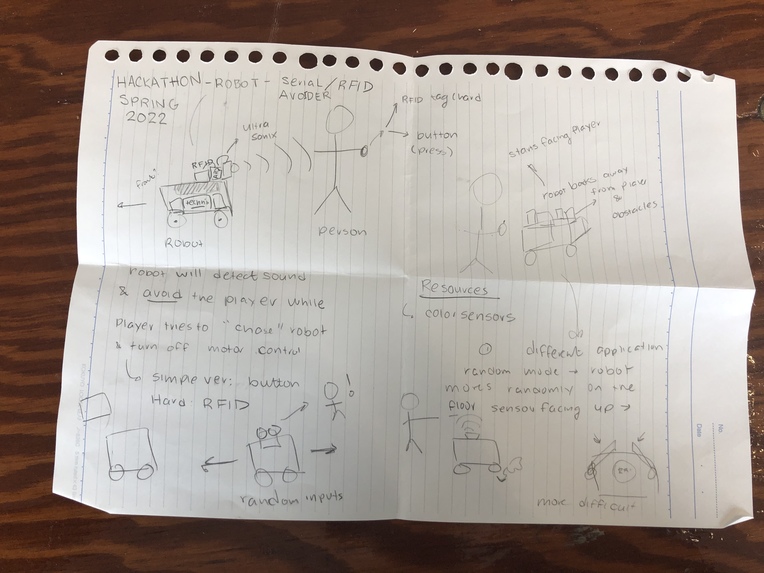 HACKATHON - ROBOT - Serial/RFID
AVOIDER
SPRING
2022
RFID tag/hard
button
(press)
Ultra
sonix
RFID
"front"
Robot
person
stans facing player
robot backs away
from player
&
obstacles
robot will detect sound
& avoid the player while
player tries to "chase" robot
& turn off motor control
simple ver: button
Hard RFID
random inputs
Resources
color sensors
different application
random mode → robot
moves randomly on the
floor sensor facing up →
more difficult
No.
Date